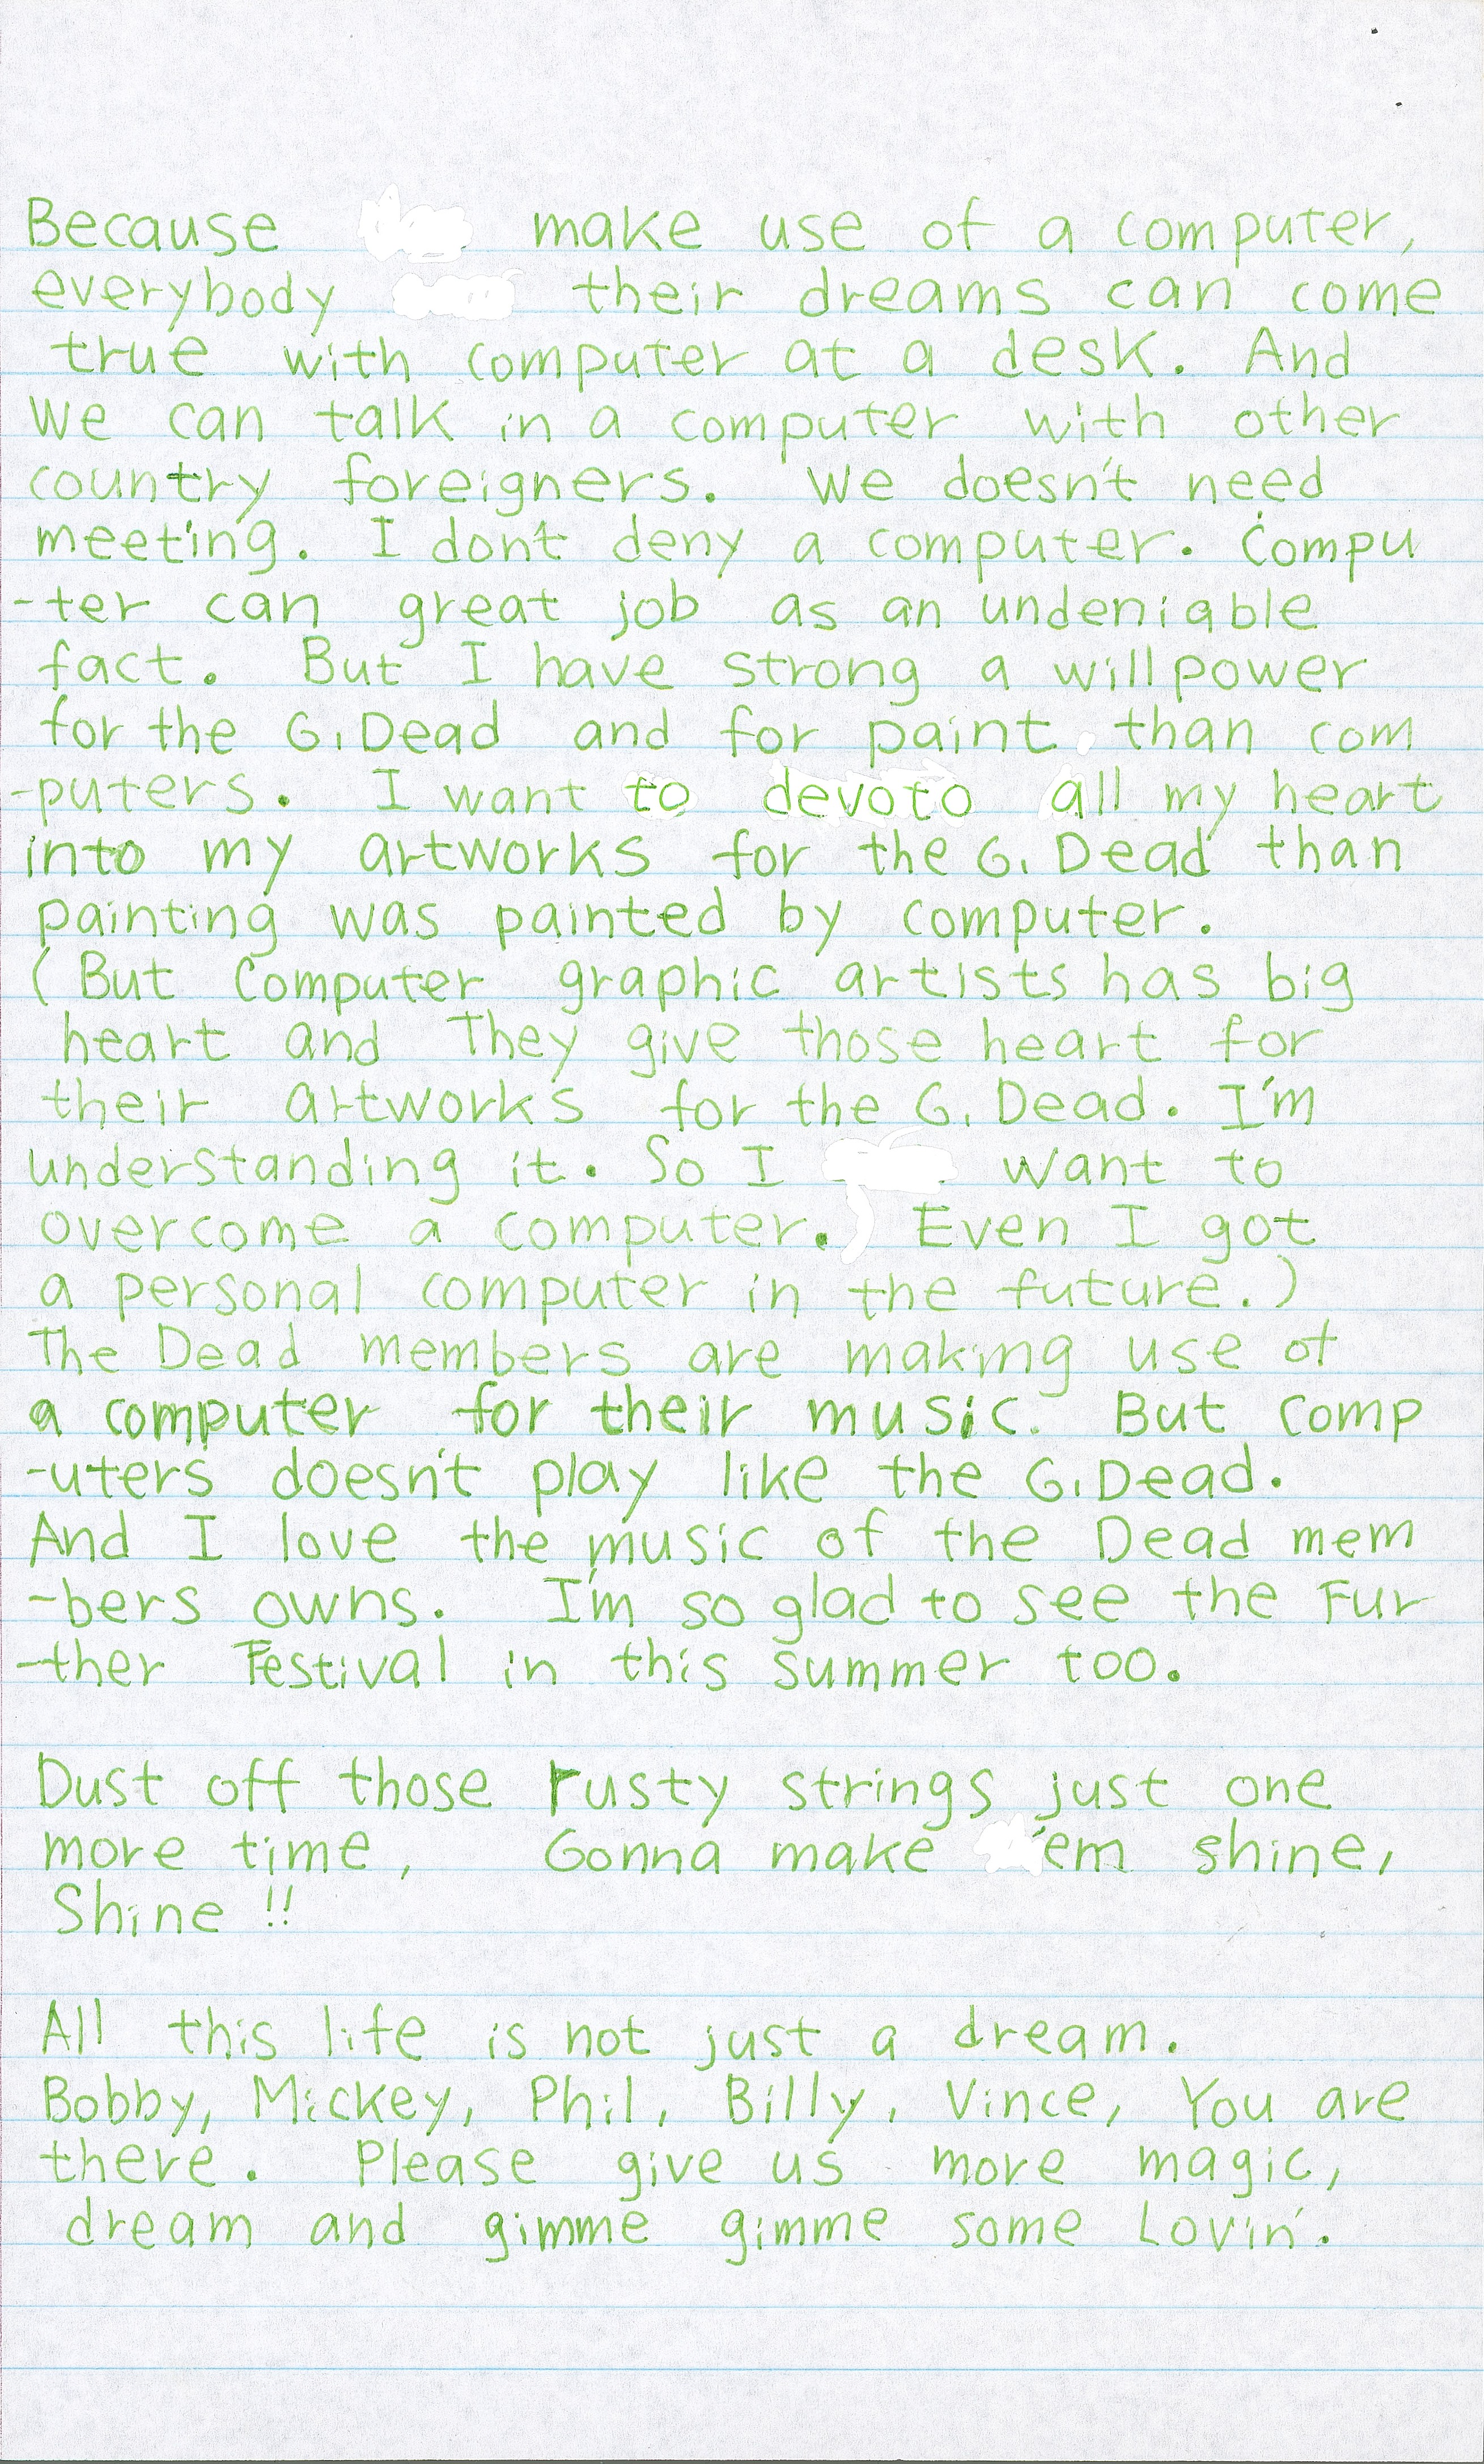 Because make use of a computer,
everybody their dreams can come
true with computer at a desk. And
We can talk in a computer with other
country foreigners. We doesn't need
meeting. I don't deny a computer. Compu
-ter can great job as an undeniable
fact. But I have strong a willpower
for the G. Dead and for paint than com
-puters. I want to devoto all my heart
into my artworks for the G. Dead than
painting was painted by computer.
(But Computer graphic artists has big
heart and They give those heart for
their artworks for the G. Dead. I'm
understanding it. So I want to
overcome a computer. Even I got
a personal computer in the future.)
The Dead members are making use of
a computer for their music. But comp
-uters doesn't play like the G. Dead.
And I love the music of the Dead mem
-bers owns. I'm so glad to see the Fur
-ther Festival in this summer too.
Dust off those rusty strings just one
more time, Gonna make 'em shine,
Shine!!
All this life is not just a dream.
Bobby, Mickey, Phil, Billy, Vince, You are
there. Please give us more magic,
dream and gimme gimme some Lovin'.